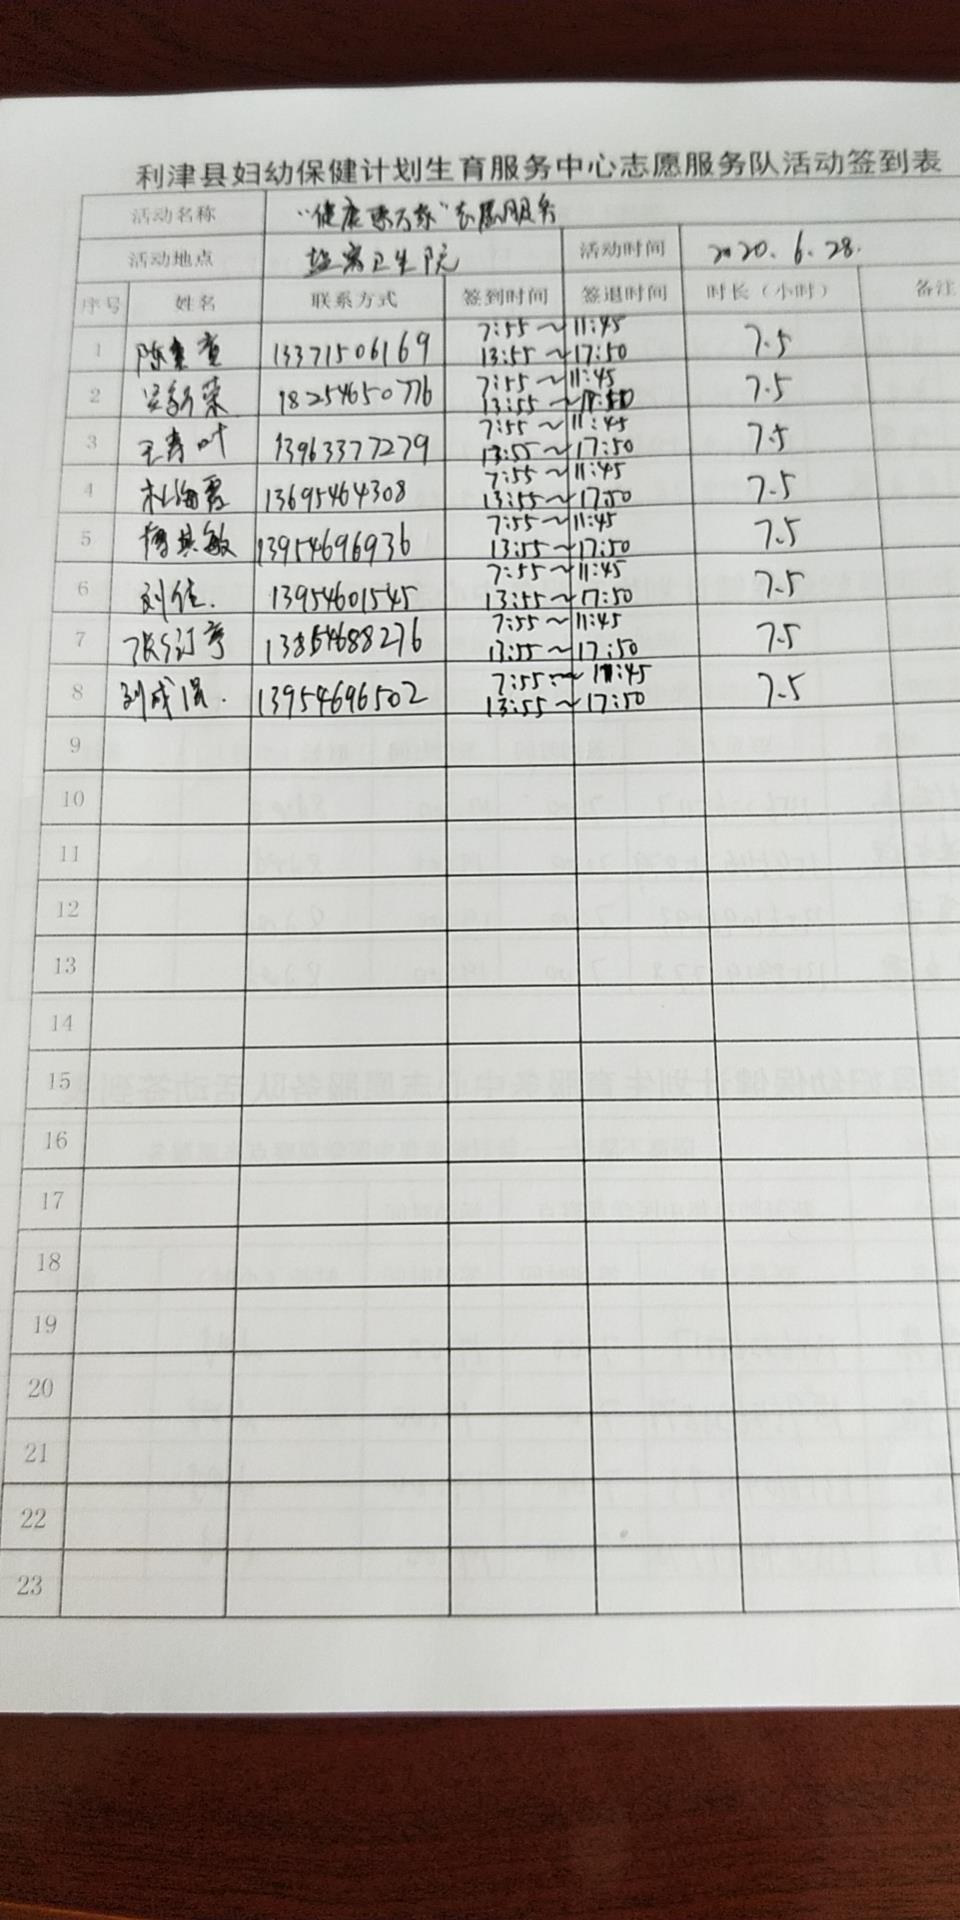 利津县妇幼保健计划生育服务中心志愿服务队活动签到表
活动名称 "健康惠万家"志愿服务
活动地点 盐窝卫生院 活动时间 2020.6.28.
序号 姓名 联系方式 签到时间 签退时间 时长（小时） 备注
1 13371506169 7:55~11:45 13:55~17:50 7.5
2 18254650776 7:55~11:45 13:55~ 7.5
3 王秀叶 13963377279 7:55~11:45 13:55~17:50 7.5
4 杜海霞 13695464308 7:55~11:45 13:55~17:50 7.5
5 13954696936 7:55~11:45 13:55~17:50 7.5
6 刘佳. 13954601545 7:55~11:45 13:55~17:50 7.5
7 13854688276 7:55~11:45 13:55~17:50 7.5
8 13954696502 7:55~11:45 13:55~17:50 7.5
9
10
11
12
13
14
15
16
17
18
19
20
21
22
23